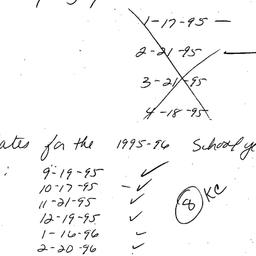 1-17-95 —
2-21-95
3-21-95
4-18-95
ates for the 1995-96 School ye
: 9-19-95 ✓
10-17-95 -✓
11-21-95 ✓
12-19-95 ✓
8 KC
1-16-96 ✓
2-20-96 ✓